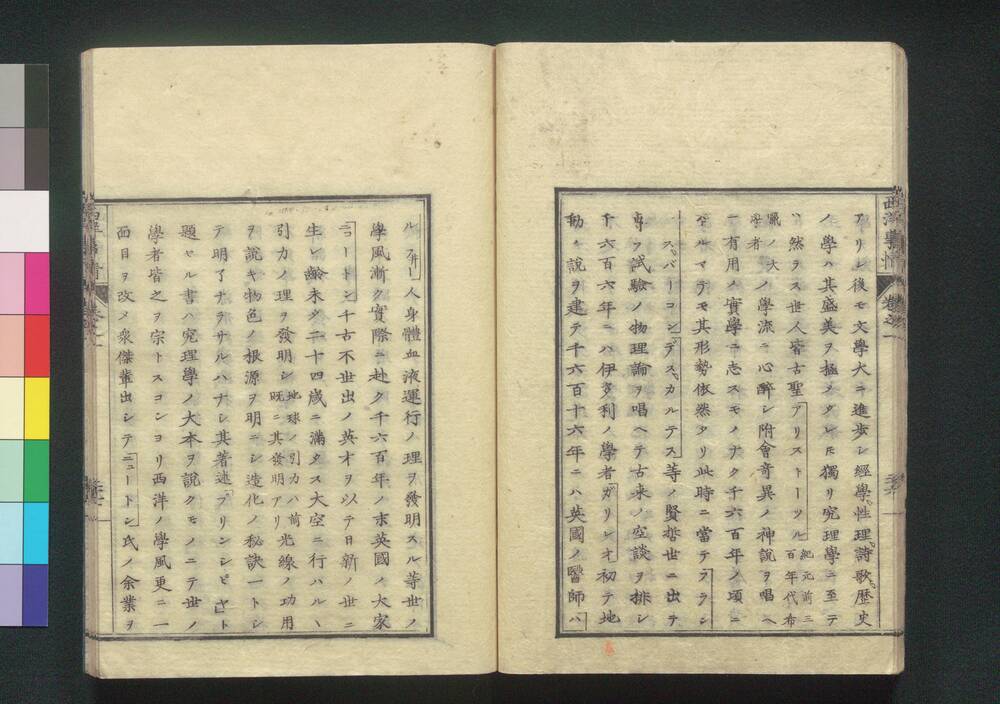 アリシ後モ文學大ニ進歩シ經學性理詩歌歴史
ノ學ハ其盛美ヲ極メタレ𪜈獨リ究理學ニ至テ
ハ然ラス世人皆古聖アリストーツル紀元前三百年代布
臘ノ大學者ノ學流ニ心醉シ附會竒異ノ神説ヲ唱ヘ
テ有用ノ實學ニ志スモノナク千六百年ノ頃ニ
至ルマテモ其形勢依然タリ此時ニ當テフランシ
ス、バーコン、デス、カルテス等ノ賢哲世ニ出テ
專ヲ試驗ノ物理論ヲ唱ヘテ古來ノ空談ヲ排シ
千六百六年ニハ伊多利ノ學者ガリレオ初テ地
動ノ説ヲ建テ千六百十六年ニハ英國ノ醫師ハ
西洋事情
卷之一
ルヴヒー人身體血液運行ノ理ヲ發明スル等世ノ
學風漸ク實際ニ赴ク千六百年ノ末英國ノ大家
ニュートン千古不世出ノ英才ヲ以テ日新ノ世ニ
生レ齡未タ二十四歳ニ滿タス大空ニ行ハルヽ
引力ノ理ヲ發明シ地球ノ引力ハ前既ニ其發明アリ光線ノ功用
ヲ説キ物色ノ根源ヲ明ニシ造化ノ秘訣一トシ
テ明了ナラサルハナシ其著述プリンシピヤト
題セル書ハ究理學ノ大本ヲ説クモノニテ世ノ
學者皆之ヲ宗トスコレヨリ西洋ノ學風更ニ一
面目ヲ改メ衆傑輩出シテニュートン氏ノ余業ヲ
西洋事情
卷之一